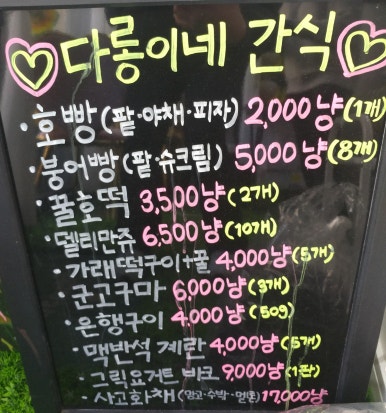 ♡다롱이네 간식♡
·호빵(팥·야채·피자) 2,000냥(1개)
·붕어빵(팥·슈크림) 5,000냥(8개)
·꿀호떡 3,500냥(2개)
·델리만쥬 6,500냥(10개)
·가래떡구이+꿀 4,000냥(5개)
·군고구마 6,000냥(3개)
·은행구이 4,000냥(50g)
·맥반석 계란 4,000냥(5개)
·그릭요거트 바크 9,000냥(1판)
·사고화채(망고·수박·멜론) 17,000냥